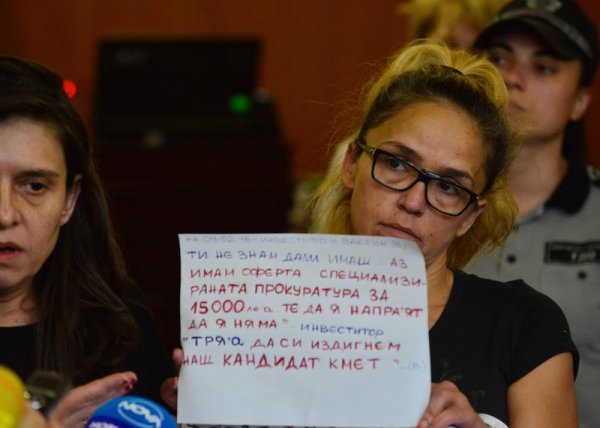 НА 09.02.18 - ИНВЕСТИТОР И ВАКЛИН (В)
ТИ НЕ ЗНАМ ДАЛИ ИМАШ...АЗ
ИМАМ ОФЕРТА СПЕЦИАЛИЗИ-
РАНАТА ПРОКУРАТУРА ЗА
15000 лв'а ТЕ ДА Я НАПРА'ЯТ
ДА Я НЯМА" - ИНВЕСТИТОР
"ТРЯ'А ДА СИ ИЗДИГНЕМ
НАШ КАНДИДАТ КМЕТ..." - (В)
NOVA